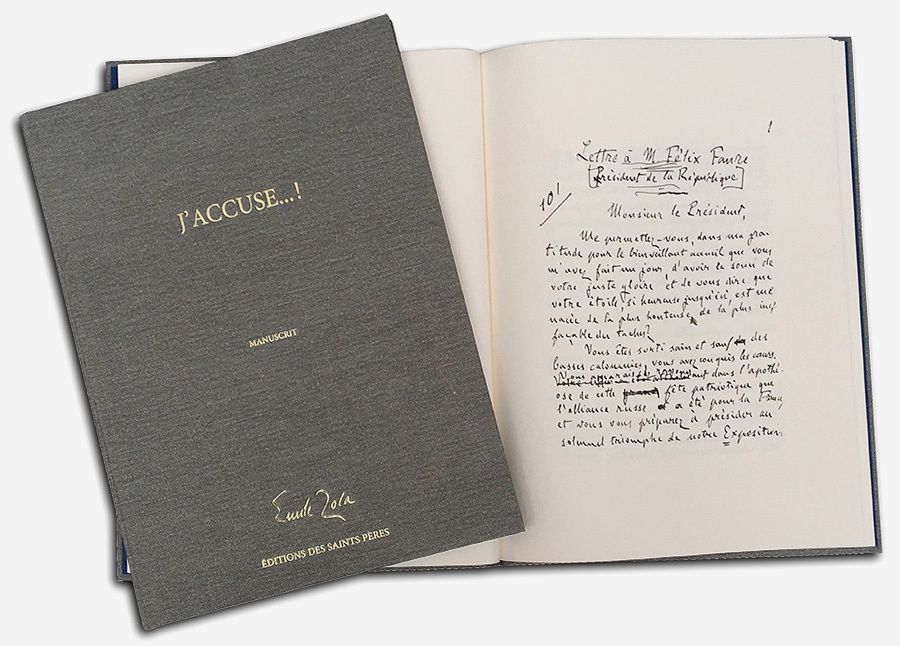 J'ACCUSE...!
MANUSCRIT
Emile Zola
ÉDITIONS DES SAINTS PÈRES
1
Lettre à M. Félix Faure
[Président de la République]
10!
Monsieur le Président,
Me permettez-vous, dans ma gra-
titude pour le bienveillant accueil que vous
m'avez fait un jour, d'avoir le souci de
votre juste gloire et de vous dire que
votre étoile, si heureuse jusqu'ici, est me
nacée de la plus honteuse, de la plus inef
façable des taches?
Vous êtes sorti sain et sauf des
basses calomnies, vous avez conquis les cœurs.
Vous apparaissez rayonnant dans l'apothé
ose de cette fête patriotique que
l'alliance russe a été pour la France,
et vous vous préparez à présider au
solennel triomphe de notre Exposition